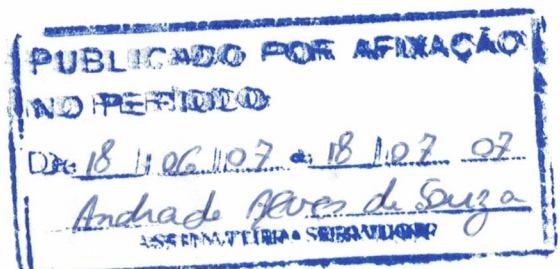 PUBLICADO POR AFIXAÇÃO
NO PERÍODO
De 18 / 06 / 07 a 18 / 07 07
Andrade Alves de Souza
ASSINATURA SERVIDOR